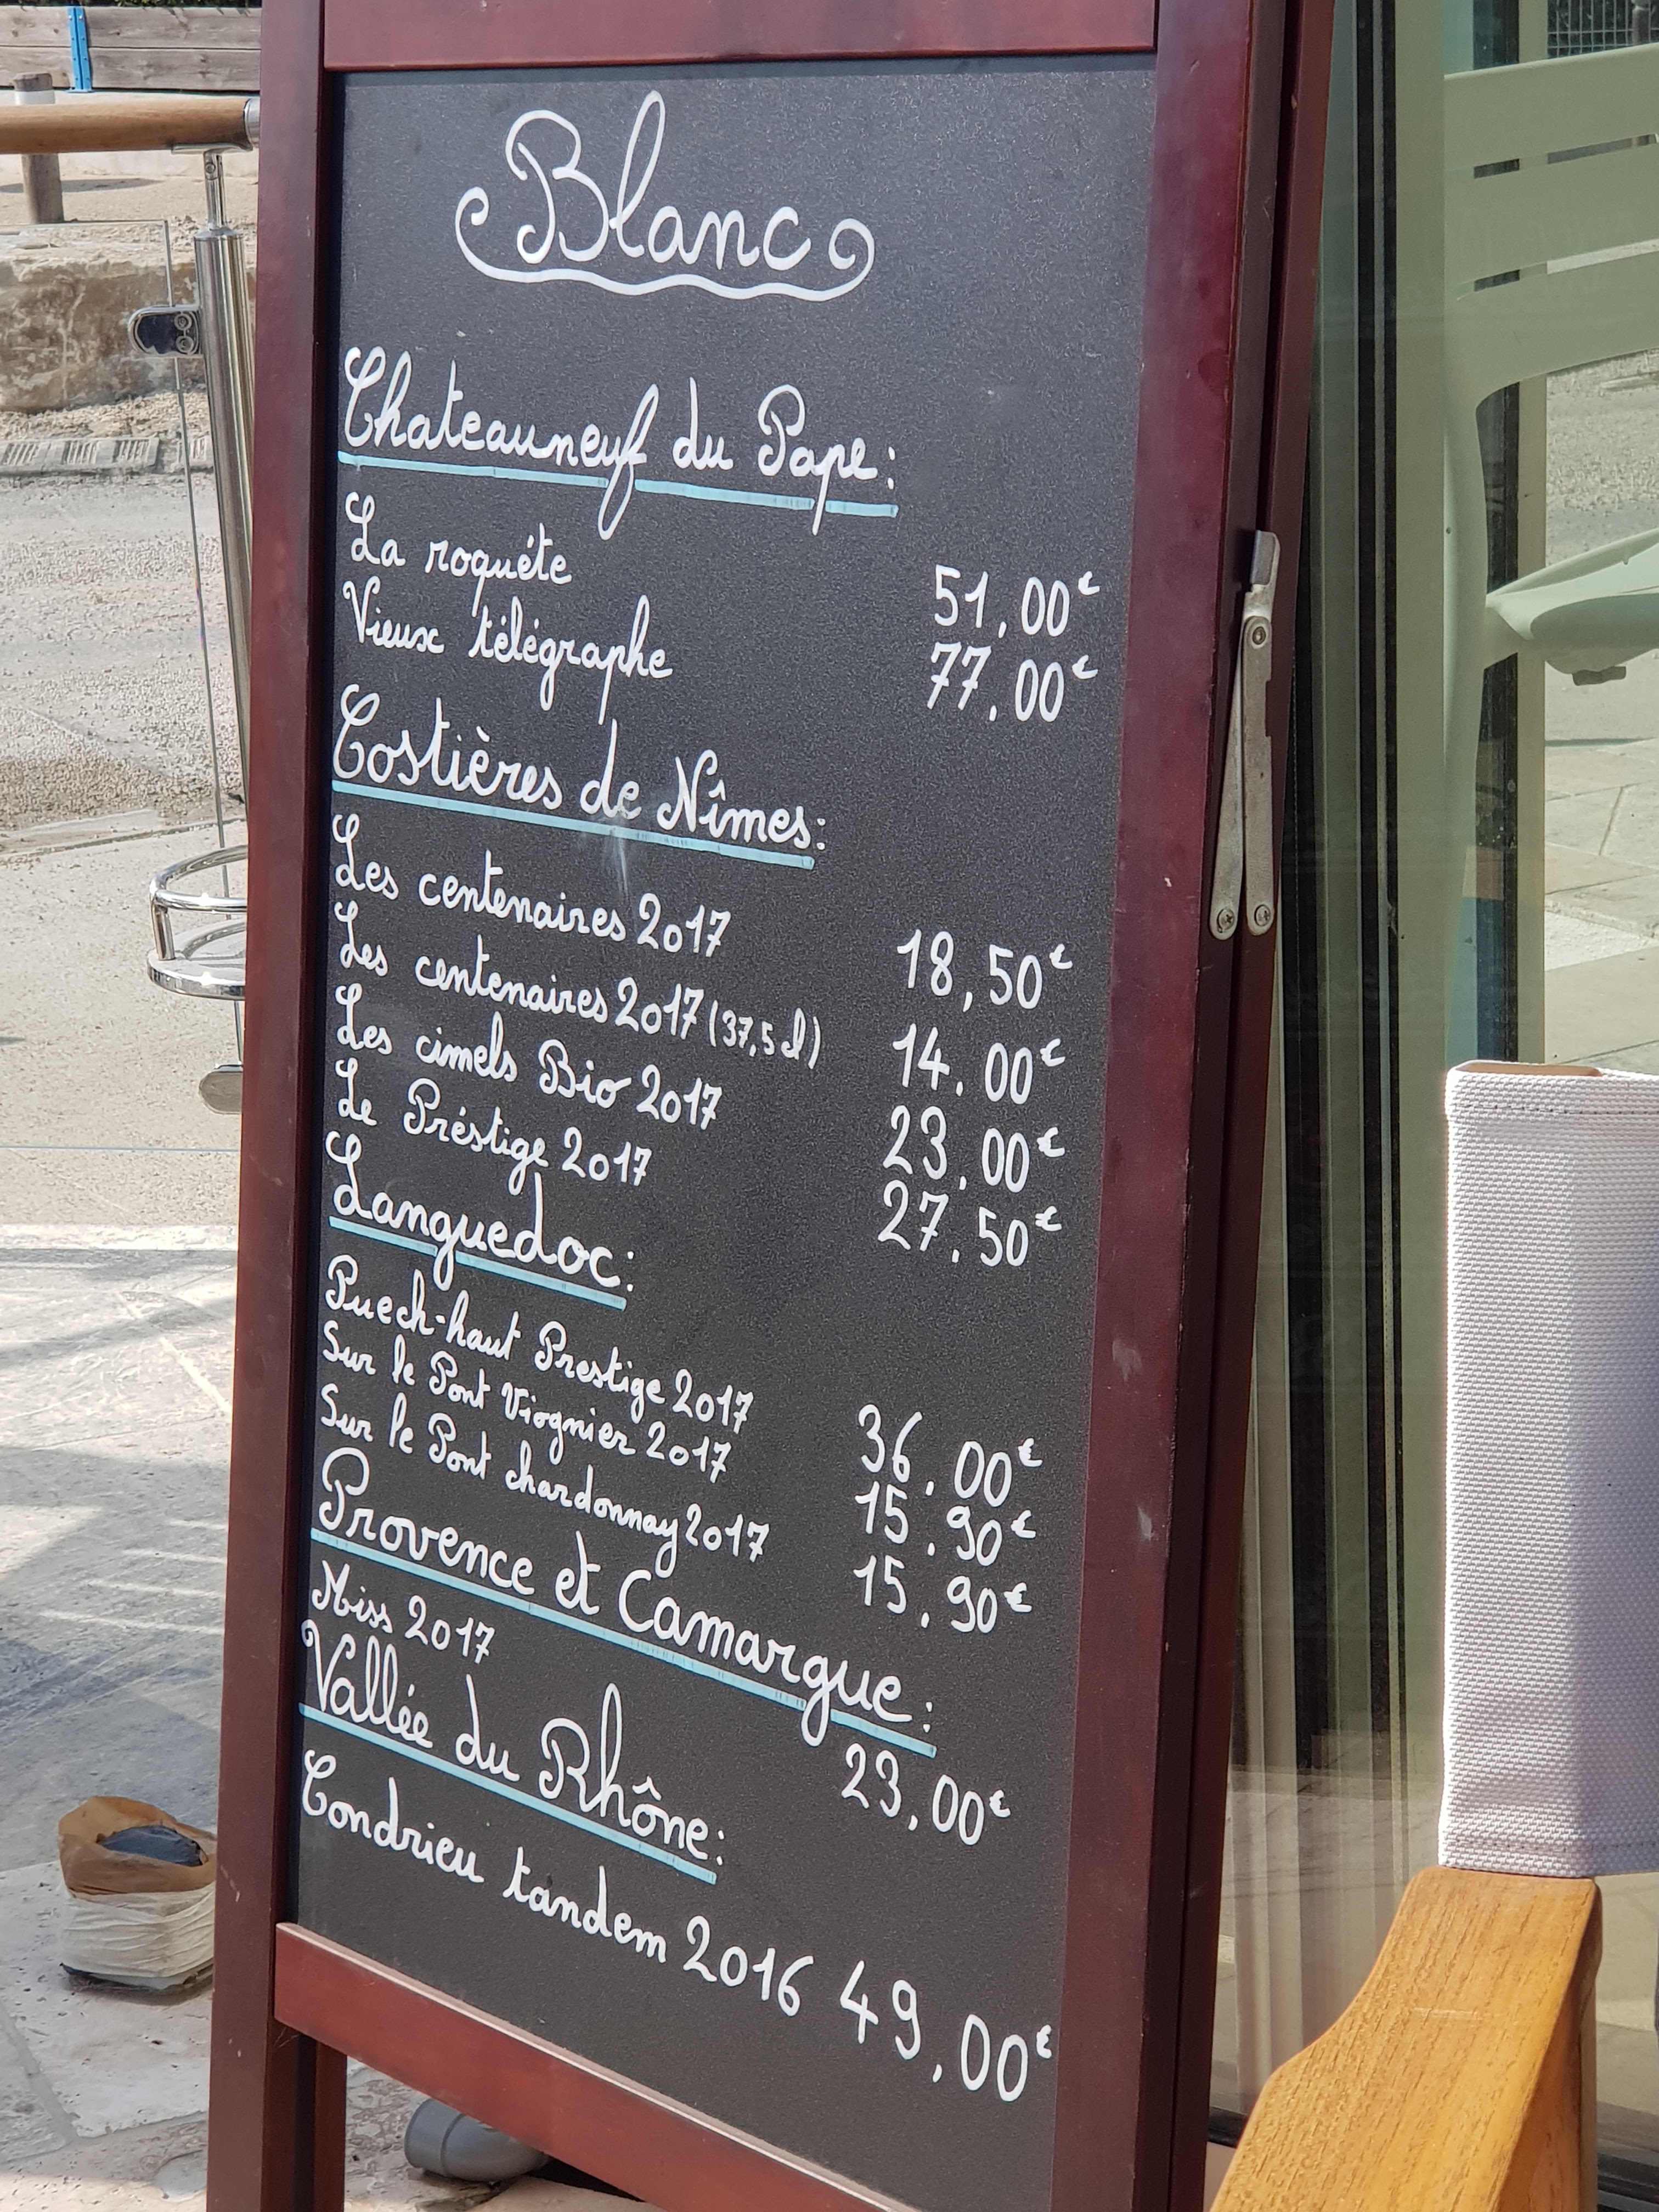 Blanc
Chateauneuf du Pape:
La roquéte 51,00€
Vieux télégraphe 77,00€
Costières de Nîmes:
Les centenaires 2017 18,50€
Les centenaires 2017 (37,5cl) 14.00€
Les cimels Bio 2017 23,00€
Le Préstige 2017 27.50€
Languedoc:
Puech-haut Prestige 2017 36.00€
Sur le Pont Viognier 2017 15.90€
Sur le Pont chardonnay 2017 15.90€
Provence et Camargue:
Miss 2017 23,00€
Vallée du Rhône:
Condrieu tandem 2016 49,00€